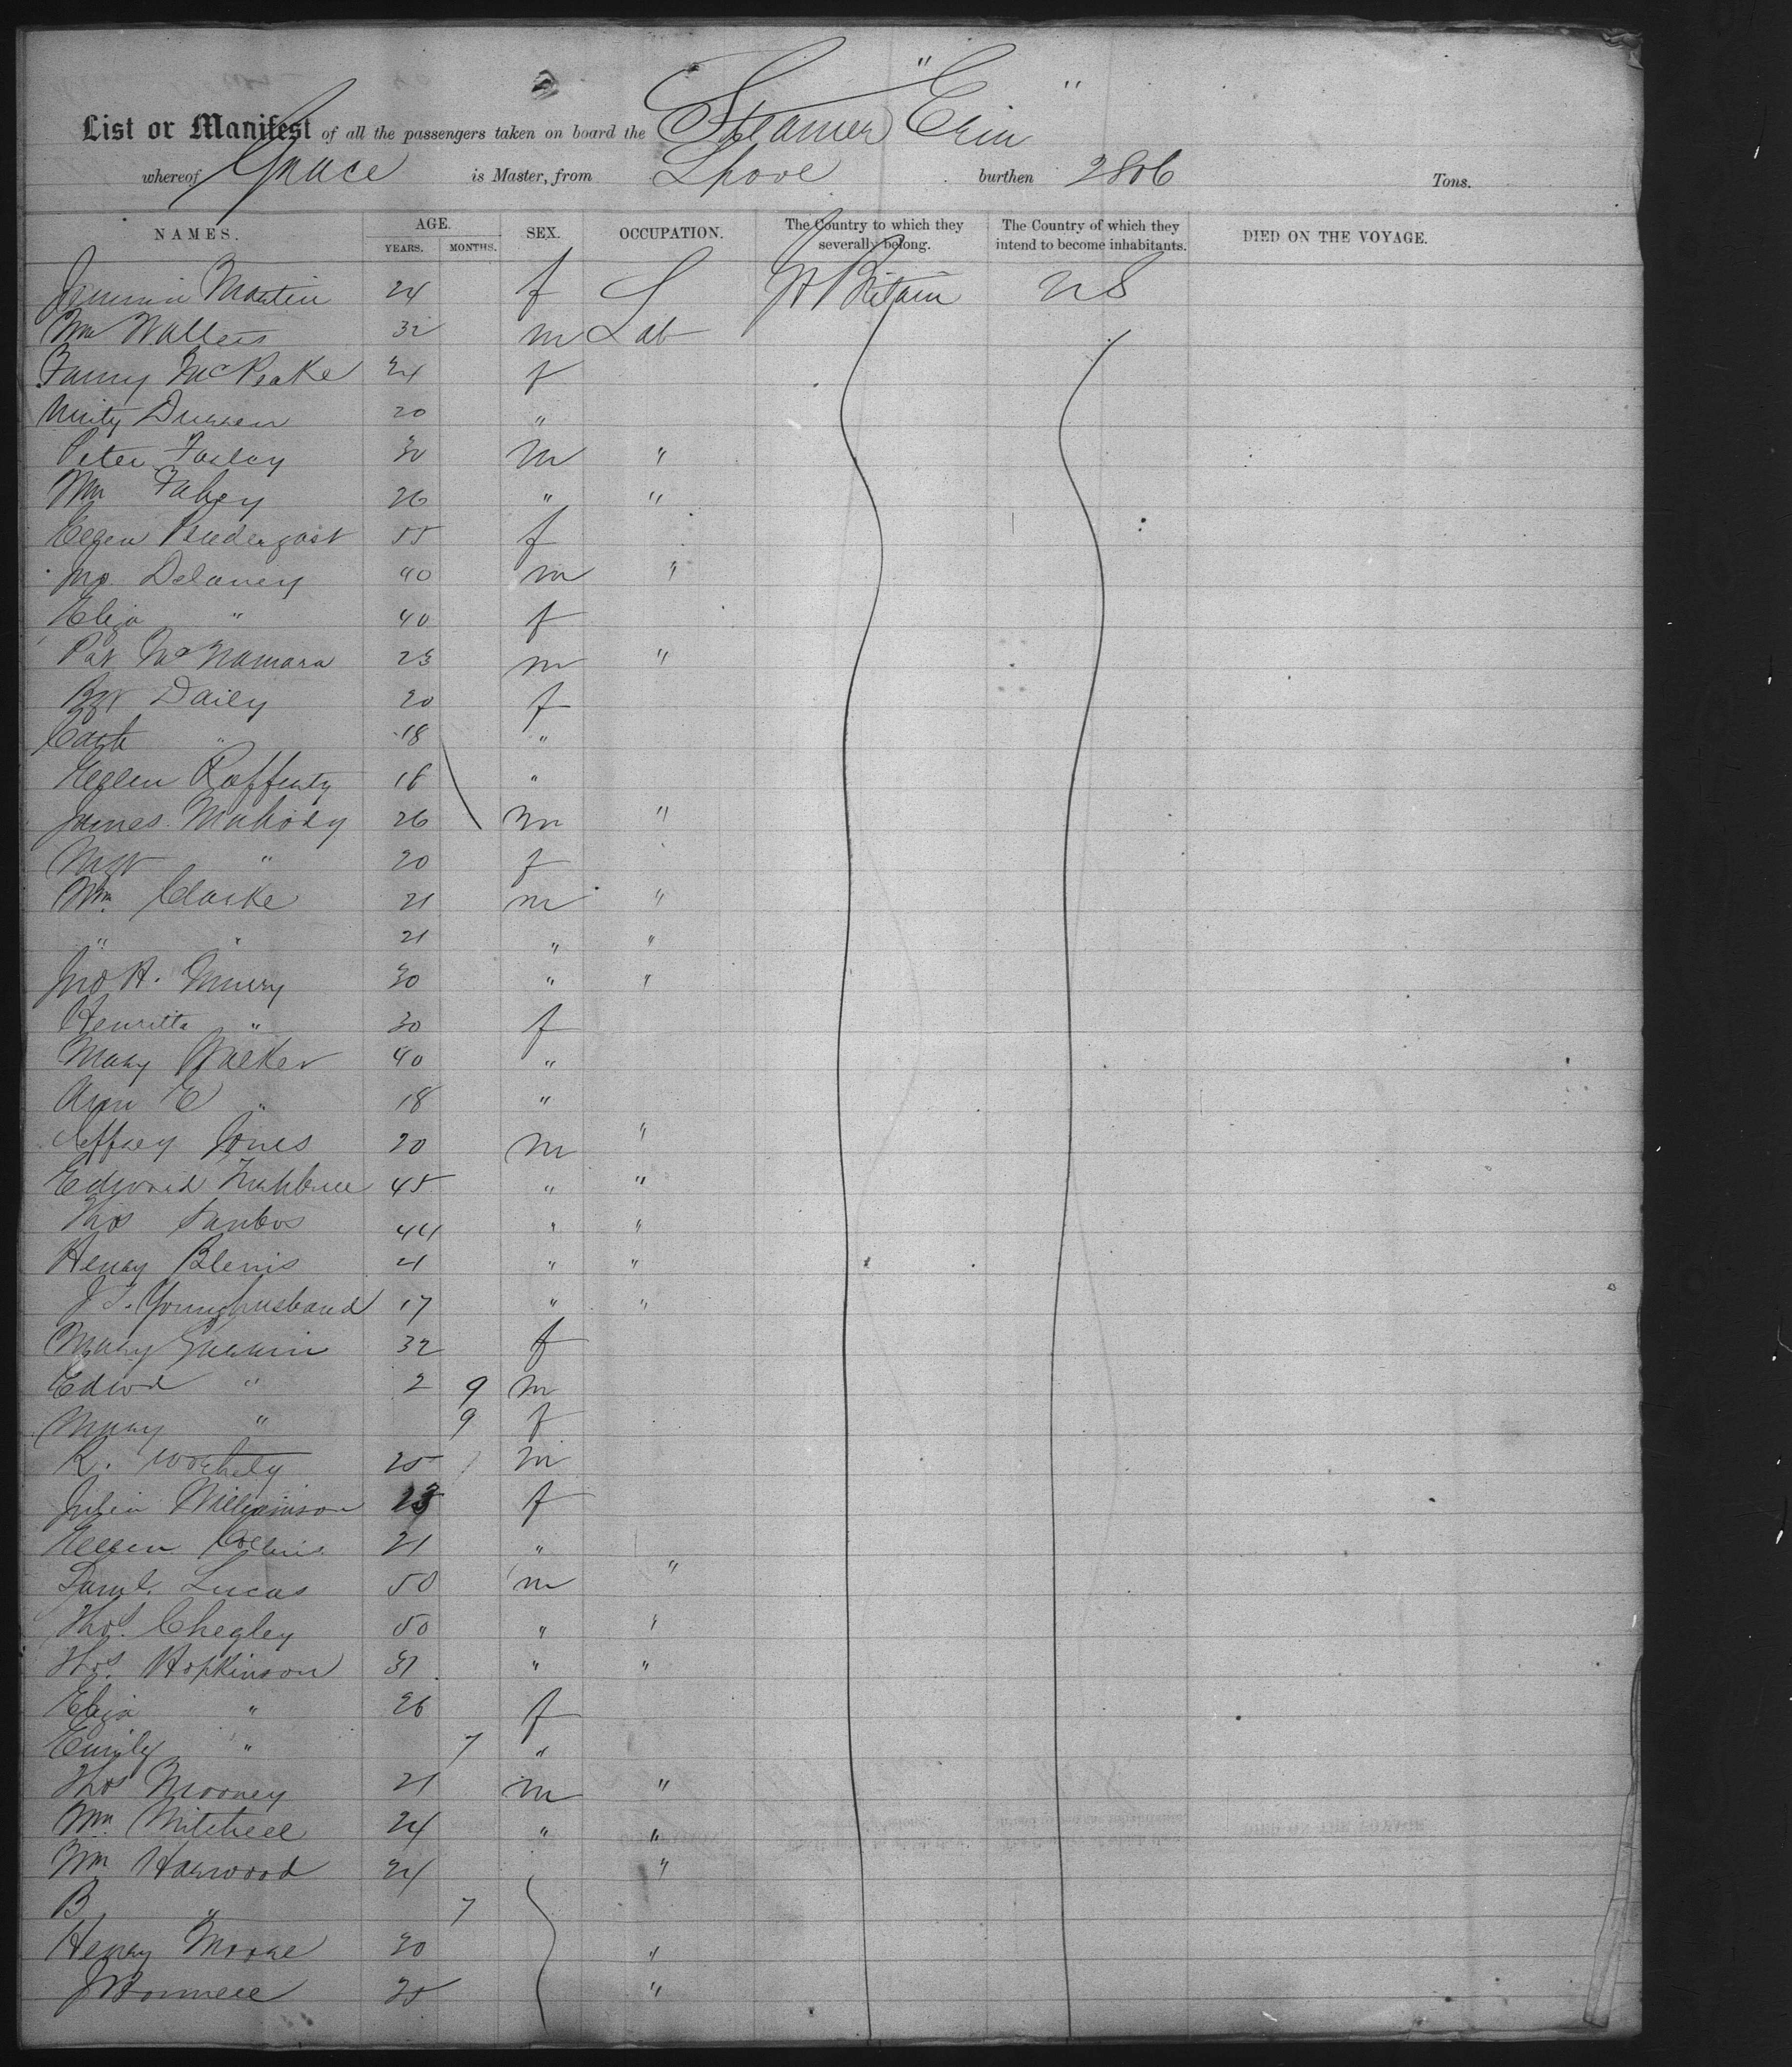 List or Manifest of all the passengers taken on board the Steamer "Erin"
whereof Grace is Master, from Lpool burthen 2806 Tons.
NAMES. AGE. YEARS. MONTHS. SEX. OCCUPATION. The Country to which they severally belong. The Country of which they intend to become inhabitants. DIED ON THE VOYAGE.
Martin 24 f S Gt Britain U S
Wm Walters 32 m Lab
Fanny McPeake 24 f
Unity 20 "
Peter Farley 30 m "
Wm Fahey 26 " "
Ellen Prendergast 55 f
Jno Delaney 40 m "
Eliza " 40 f
Pat McNamara 23 m "
Daily 20 f
Cath " 18 "
Ellen Rafferty 18 "
James Mahody 26 m "
Mgt " 20 f
Wm Clarke 21 m "
" " 21 " "
Jno H. 30 " "
Henritta " 30 f
Mary Walker 40 "
Ann E " 18 "
Jeffrey Jones 20 m "
Edward 45 " "
Thos 44 " "
Henry Blenis 21 " "
J T. Younghusband 17 " "
Mary 32 f
Edwd " 2 9 m
Mary " 9 f
R. 25 m
Julia Williamson f
Ellen Collins 21 "
Saml. Lucas 50 m "
Thos. Chegley 50 " "
Thos. Hopkinson 31 " "
Eliza " 26 f
Emily " 7 "
Thos Mooney 21 m "
Wm Mitchell 24 " "
Wm Harwood 24 "
B " 7
Henry Moore 30 "
J 25 "